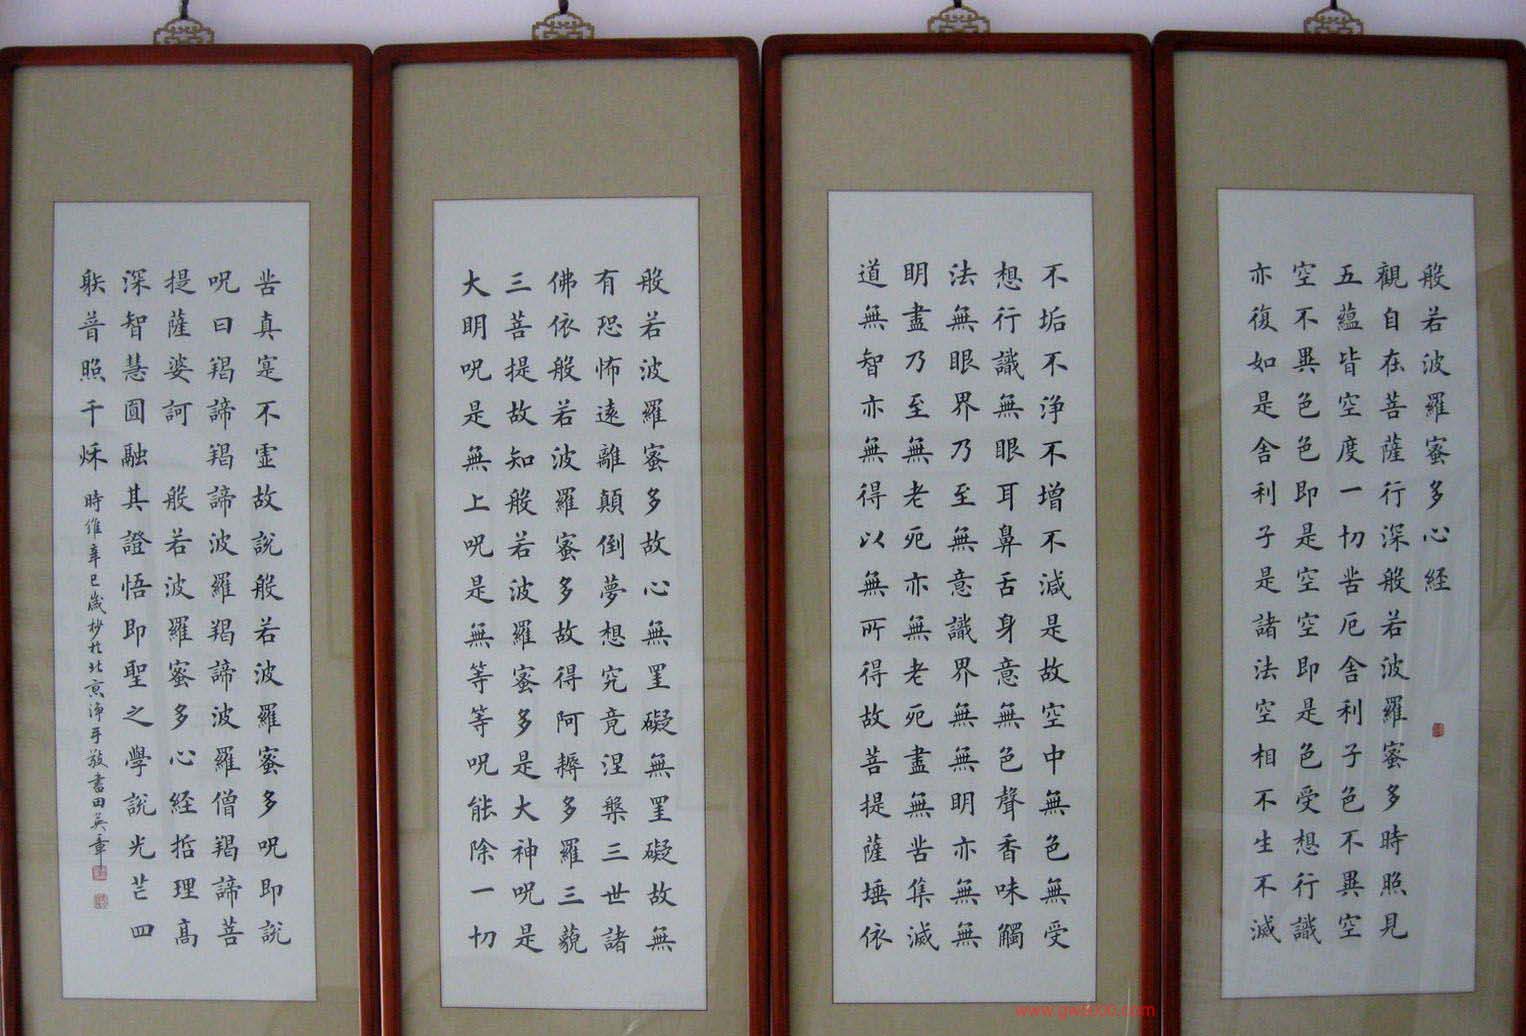 般若波羅蜜多心経
觀自在菩薩行深般若波羅蜜多時照見
五蘊皆空度一切苦厄舍利子色不異空
空不異色色即是空空即是色受想行識
亦復如是舍利子是諸法空相不生不滅
不垢不淨不增不減是故空中無色無受
想行識無眼耳鼻舌身意無色聲香味觸
法無眼界乃至無意識界無無明亦無無
明盡乃至無老死亦無老死盡無苦集滅
道無智亦無得以無所得故菩提薩埵依
般若波羅蜜多故心無罣礙無罣礙故無
有恐怖遠離顛倒夢想究竟涅槃三世諸
佛依般若波羅蜜多故得阿耨多羅三藐
三菩提故知般若波羅蜜多是大神呪是
大明呪是無上呪是無等等呪能除一切
苦真寔不虛故説般若波羅蜜多呪即説
呪曰羯諦羯諦波羅羯諦波羅僧羯諦菩
提薩婆訶 般若波羅蜜多心経哲理高
深智慧圓融其證悟即聖之學説光芒四
䠶普照千秌 時維辛巳歲杪於北京淨手敬書田英章